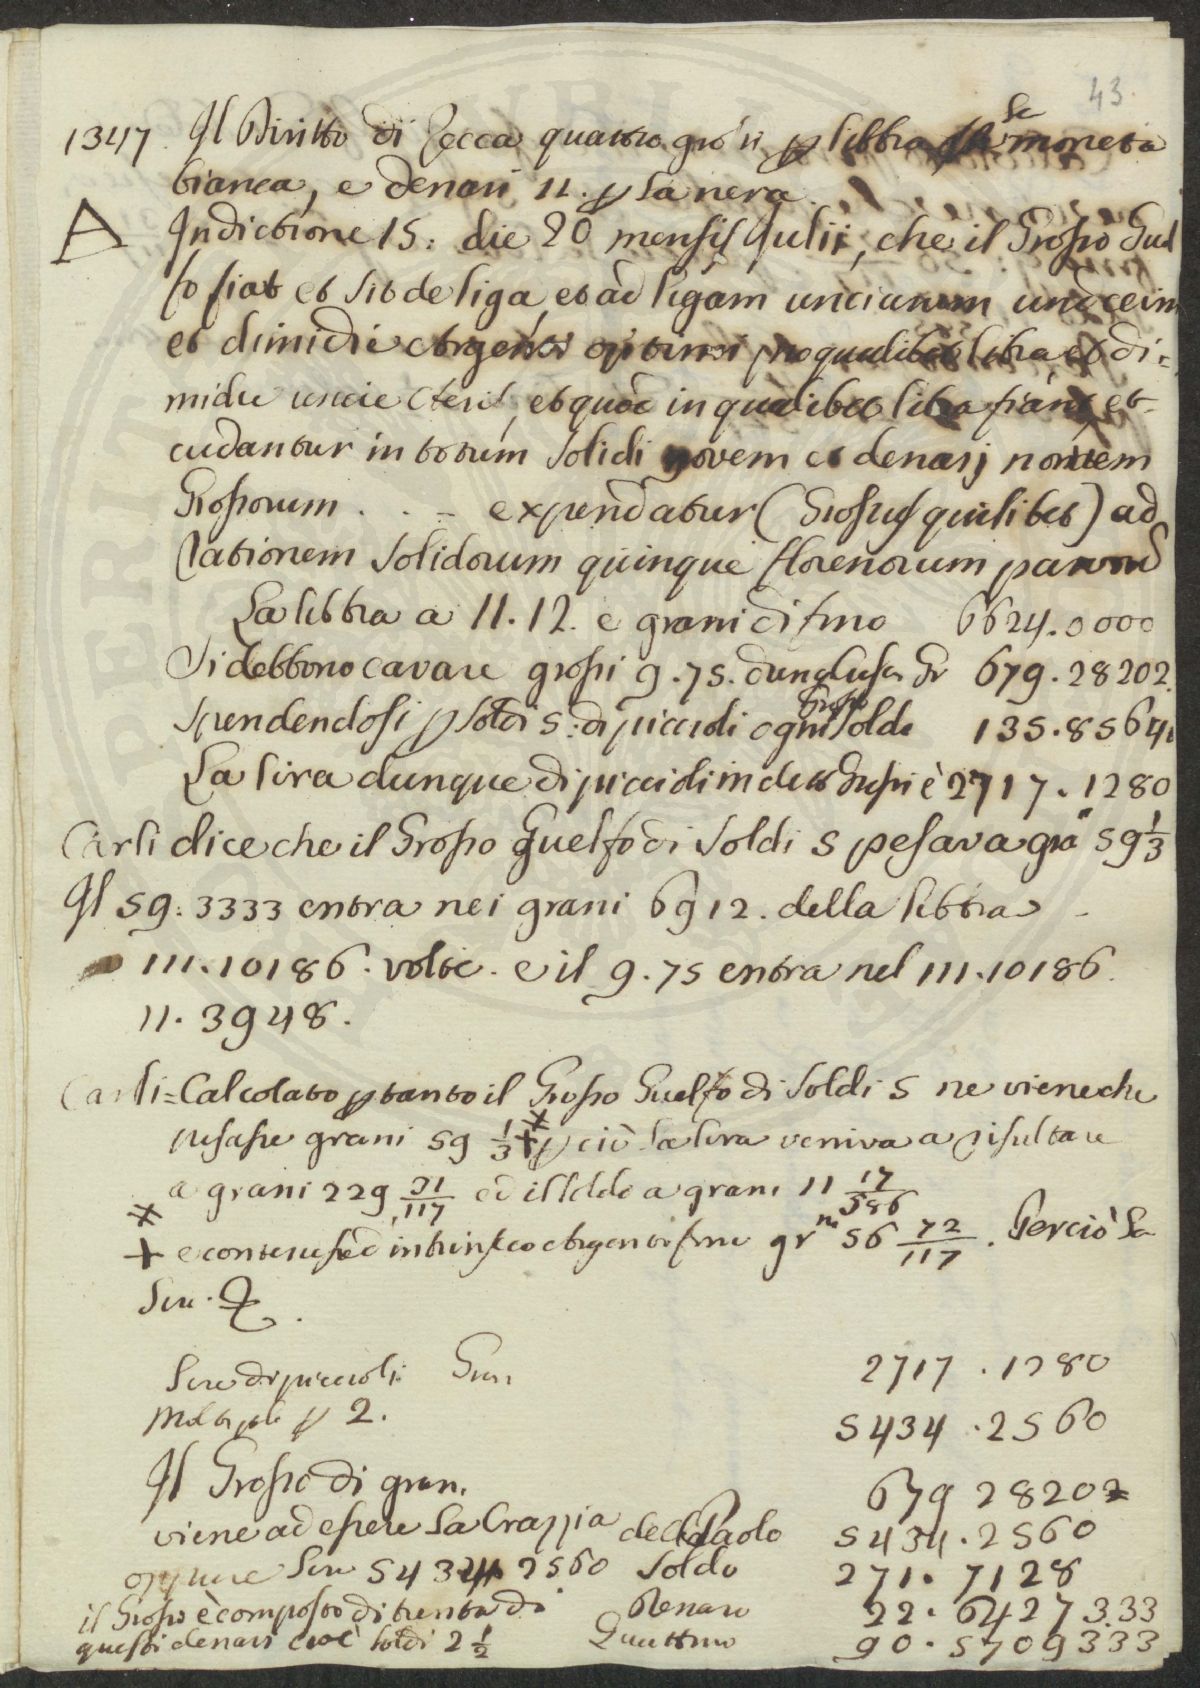 43.
1347. Il Diritto di Zecca quattro gro'si p libbra se moneta
bianca, e denari 11. p la nera.
A Indictione 15: die 20 mensis Julii, che il Grosso Guel
fo fiat et sit de liga, et ad ligam unciarum undecim
et dimidie Argenti optimi pro qualibet libra et di=
midie uncie , et quod in qualibet libra fiant et
cudantur in totum Solidi novem et denarj novem
Grossorum . . - expendatur (Grossus quilibet) ad
rationem Solidorum quinque florenorum parvorum
La libbra a 11.12. e grani di fino 6624.0000
Si debbono cavare grossi 9.75. dunque Gr 679.28202
Spendendosi p soldi 5: di piccioli ogni Grosso Soldo 135.85641
La lira dunque di piccioli in detti Grossi è 2717.1280
Carli dice che il Grosso Guelfo di Soldi 5 pesava gra 59 1/3
Il 59:3333 entra nei grani 6912. della libbra -
111.10186. volte. e il 9.75 entra nel 111.10186.
11.3948.
Carli=Calcolato ptanto il Grosso Guelfo di Soldi 5 ne viene che
pesasse grani 59 1/3 + p ciò la lira veniva a risultare
a grani 229 31/117 ed il soldo a grani 11 17/586
+ e contenesse d'intrinseco Argento fine gr.ni 56 72/117. Perciò la
Lire.
Lire di piccioli Grani 2717.1280
Moltipli p 2. 5434.2560
Il Grosso di gran. 679 28202
viene ad essere la Crazzia del Paolo 5434.2560
oppure Lire 5434 2560 Soldo 271.7128
il Grosso è composto di trenta di Denaro 22.6427333
questi denari cioè soldi 2 1/2 Quattrino 90.5709333